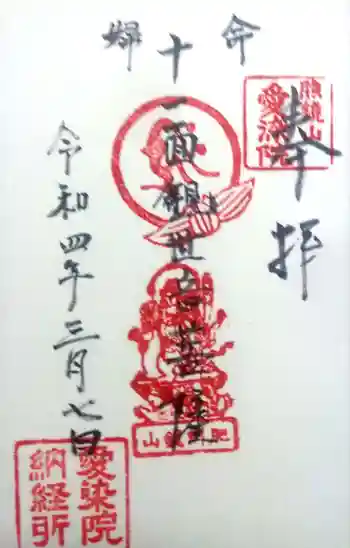 奉拝
命
十一面観世音菩薩
婦
令和四年三月七日
愛染院
愛染院
納経所